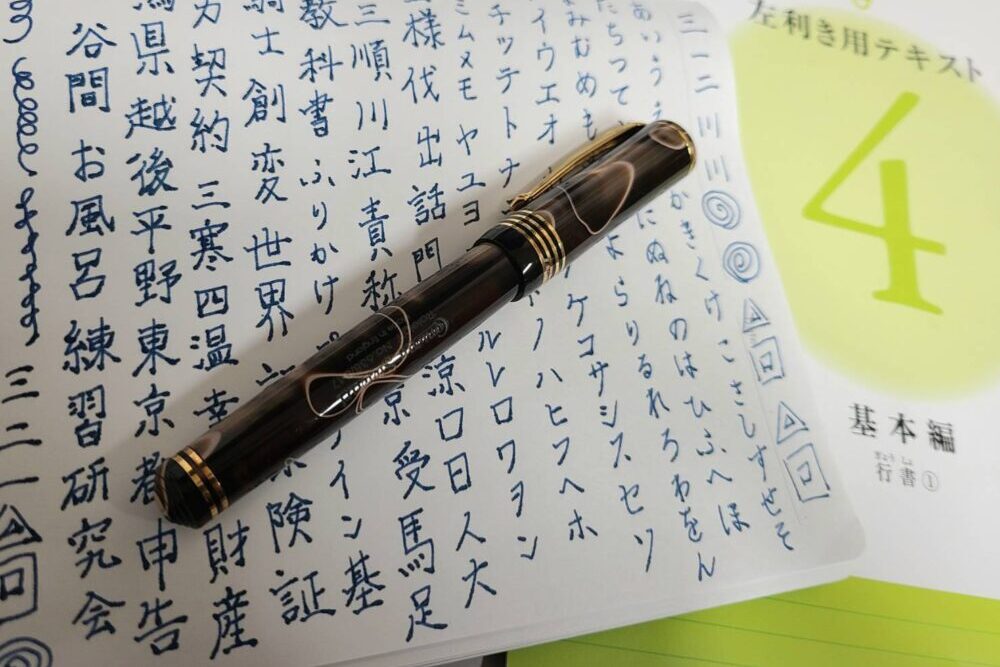 左利き用テキスト
4
基本編
ぎょうしょ
行書①
三一二川川 回 回
あいうえ かきくけこさしすせそ
たちつて にぬねのはひふへほ
みむめも よらりるれろわをん
イウエオ ケコサシスセソ
チッテトナ ノハヒフヘホ
ミムメモ ヤユヨ ルレロワヲン
様伐出話門 涼口日人大
三順川江責称 京受馬足
教科書 ふりかけ イン 基
士 創変 世界 険証
契約 三寒四温 幸 財産
県 越後平野 東京都 申告
谷間 お風呂 練習 研究会
三二一 回
Made in England